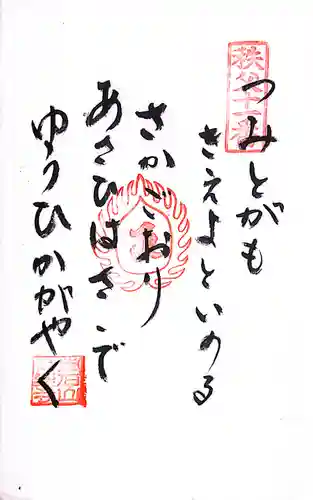 秩父十一番
つみとがも
きえよといのる
さかごおり
あさひはさゝで
ゆうひかがやく